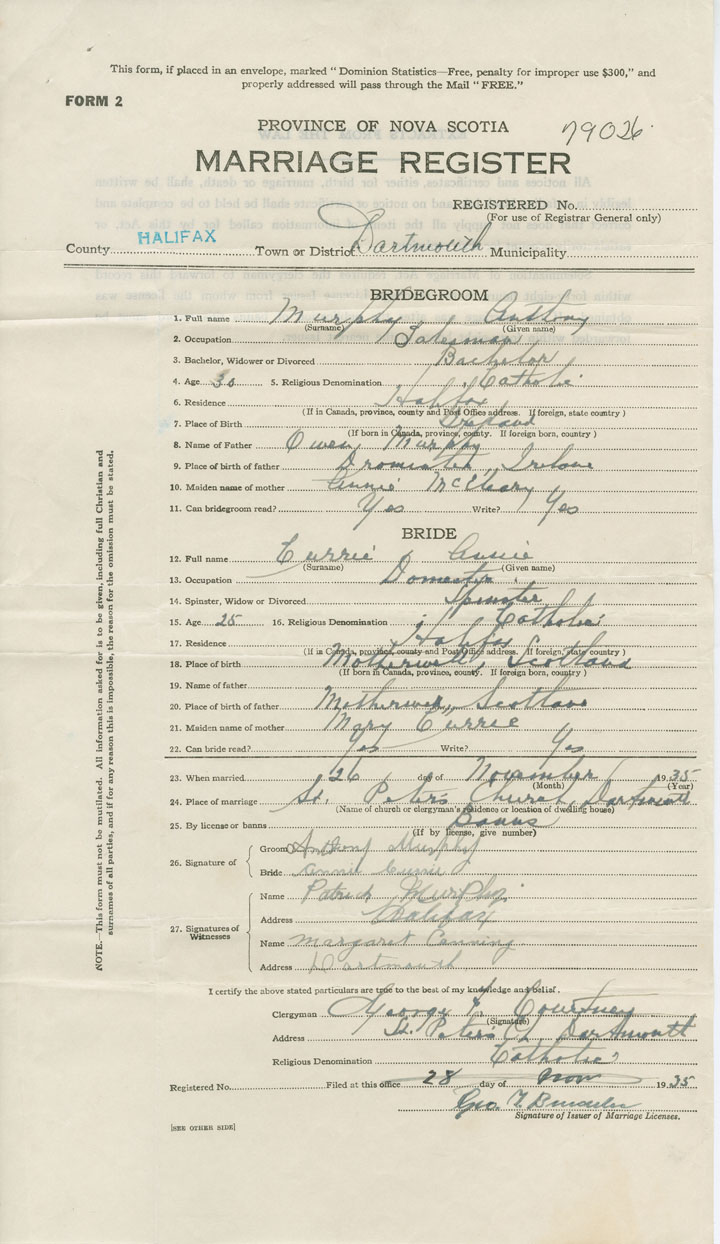 This form, if placed in an envelope, marked "Dominion Statistics—Free, penalty for improper use $300," and
properly addressed will pass through the Mail "FREE."
FORM 2
PROVINCE OF NOVA SCOTIA
79026
MARRIAGE REGISTER
REGISTERED No.
(For use of Registrar General only)
County HALIFAX Town or District Dartmouth Municipality
BRIDEGROOM
1. Full name Murphy Anthony
(Surname) (Given name)
2. Occupation Salesman
3. Bachelor, Widower or Divorced Bachelor
4. Age 30 5. Religious Denomination Catholic
6. Residence Halifax
(If in Canada, province, county and Post Office address. If foreign, state country)
7. Place of Birth Ireland
(If born in Canada, province, county. If foreign born, country)
8. Name of Father Owen Murphy
9. Place of birth of father Ireland
10. Maiden name of mother Annie
11. Can bridegroom read? Yes Write? Yes
BRIDE
12. Full name Currie Annie
(Surname) (Given name)
13. Occupation Domestic
14. Spinster, Widow or Divorced Spinster
15. Age 25 16. Religious Denomination Catholic
17. Residence Halifax
(If in Canada, province, county and Post Office address. If foreign, state country)
18. Place of birth Motherwell, Scotland
(If born in Canada, province, county. If foreign born, country)
19. Name of father
20. Place of birth of father Motherwell, Scotland
21. Maiden name of mother Mary Currie
22. Can bride read? Yes Write? Yes
23. When married 26 day of November 1935
(Month) (Year)
24. Place of marriage St. Peter's Church, Dartmouth
(Name of church or clergyman's residence or location of dwelling house)
25. By license or banns Banns
(If by license, give number)
26. Signature of
Groom Anthony Murphy
Bride Annie Currie
27. Signatures of Witnesses
Name Patrick Murphy
Address Halifax
Name Margaret Canning
Address Dartmouth
I certify the above stated particulars are true to the best of my knowledge and belief.
Clergyman George Courtney
(Signature)
Address St. Peter's Ch. Dartmouth
Religious Denomination Catholic
Registered No. Filed at this office 28 day of Nov 1935
Geo.
Signature of Issuer of Marriage Licenses.
[SEE OTHER SIDE]
NOTE.—This form must not be mutilated. All information asked for is to be given, including full Christian and
surnames of all parties, and if for any reason this is impossible, the reason for the omission must be stated.